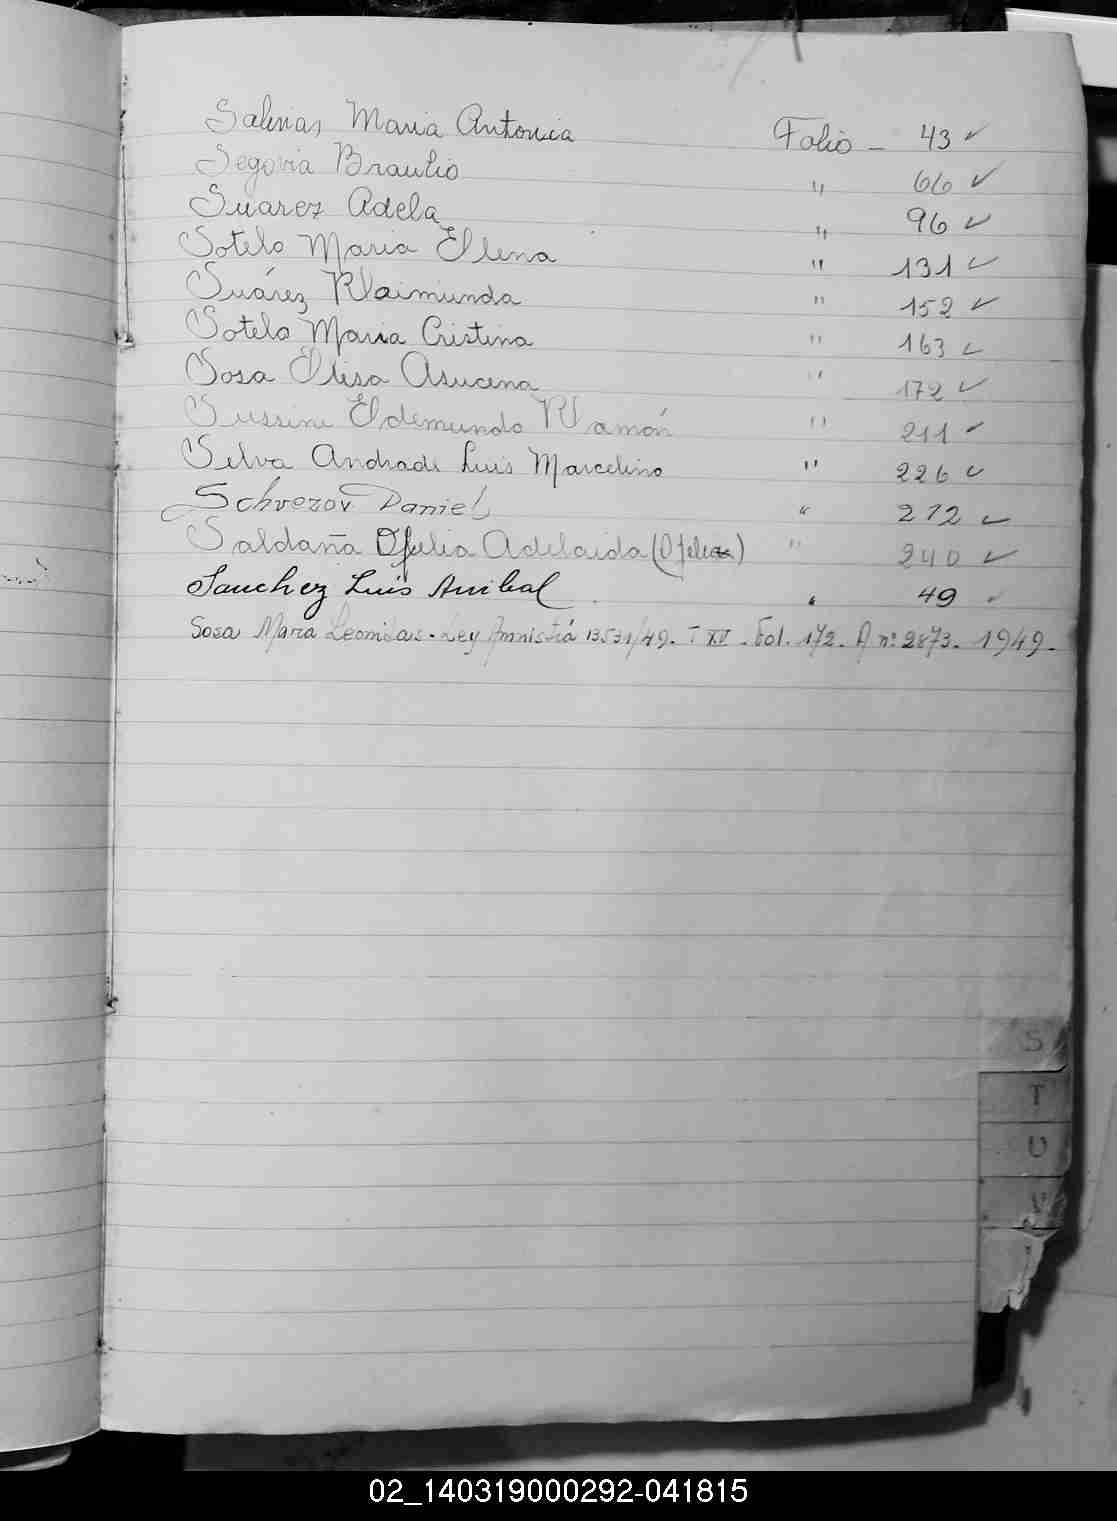 Salinas Maria Antonia Folio - 43 ✓
Segovia Braulio " 66 ✓
Suarez Adela " 96 ✓
Sotelo Maria Elena " 131 ✓
Suárez Raimunda " 152 ✓
Sotelo Maria Cristina " 163 ✓
Sosa Elisa Asucena " 172 ✓
Sussini Eldemundo Ramón " 211 ✓
Silva Andrade Luis Marcelino " 226 ✓
Schvezov Daniel " 272 ✓
Saldaña Ofelia Adelaida (Ofelia) " 240 ✓
Sanchez Luis Anibal " 49 ✓
Sosa Maria Leonidas - Ley Amnistiá 13531/49. T XV - Fol. 172. A nº 2873. 1949.
S
T
U
V
02_140319000292-041815